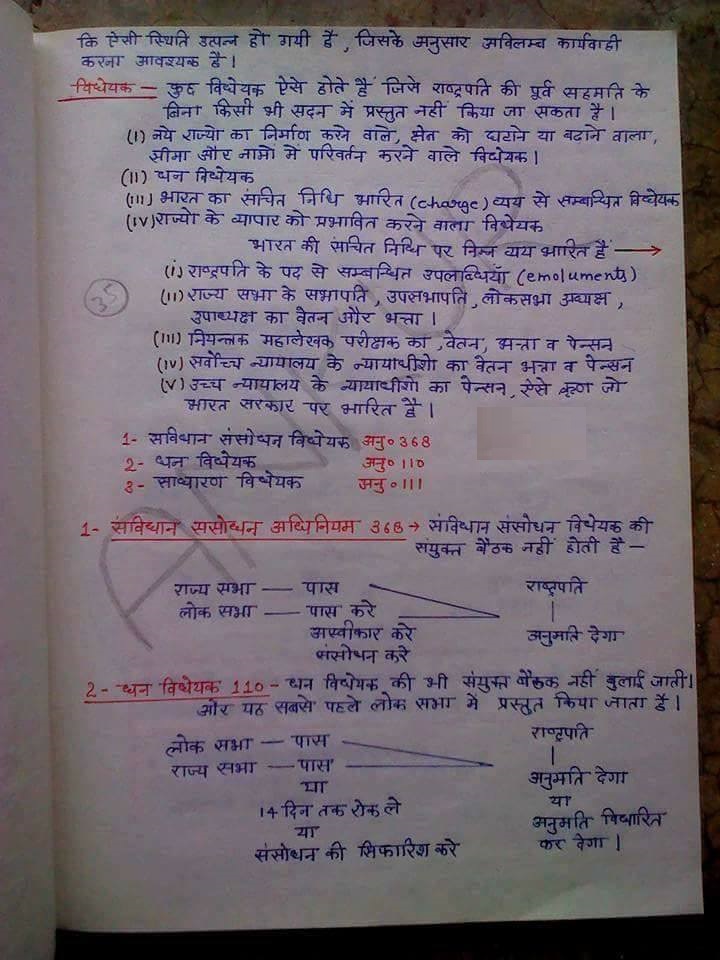 कि ऐसी स्थिति उत्पन्न हो गयी है, जिसके अनुसार अविलम्ब कार्यवाही
करना आवश्यक है।
विधेयक — कुछ विधेयक ऐसे होते हैं जिजे राष्ट्रपति की पूर्व सहमति के
बिना किसी भी सदन में प्रस्तुत नहीं किया जा सकता है।
(I) नये राज्यो का निर्माण करने वाले, क्षेत्र को घटाने या बढाने वाला,
सीमा और नामों में परिवर्तन करने वाले विधेयक।
(II) धन विधेयक
(III) भारत का संचित निधि भारित (charge) व्यय से सम्बन्धित विधेयक
(IV) राज्यो के व्यापार को प्रभावित करने वाला विधेयक
भारत की संचित निधि पर निम्न व्यय भारित है →
(i) राष्ट्रपति के पद से सम्बन्धित उपलब्धियाँ (emoluments)
35
(II) राज्य सभा के सभापति, उपसभापति, लोकसभा अध्यक्ष,
उपाध्यक्ष का वेतन और भत्ता।
(III) नियन्त्रक महालेखक परीक्षक का, वेतन, भत्ता व पेन्सन
(IV) सर्वोच्च न्यायालय के न्यायाधीशो का वेतन भत्ता व पेन्सन
(V) उच्च न्यायालय के न्यायाधीशो का पेन्सन, ऐसे ऋण जो
भारत सरकार पर भारित है।
1- संविधान संसोधन विधेयक अनु० 368
2- धन विधेयक अनु० 110
3- साधारण विधेयक अनु० 111
1- संविधान ससोधन अधिनियम 368 → संविधान संसोधन विधेयक की
संयुक्त बैठक नहीं होती है —
राज्य सभा — पास राष्ट्रपति
लोक सभा — पास करे
अस्वीकार करे अनुमति देगा
संसोधन करे
2- धन विधेयक 110 - धन विधेयक की भी संयुक्त बैठक नहीं बुलाई जाती।
और यह सबसे पहले लोक सभा में प्रस्तुत किया जाता है।
लोक सभा — पास राष्ट्रपति
राज्य सभा — पास
या अनुमति देगा
14 दिन तक रोक ले या
या अनुमति विधारित
संसोधन की सिफारिश करे कर देगा।
ANKUR